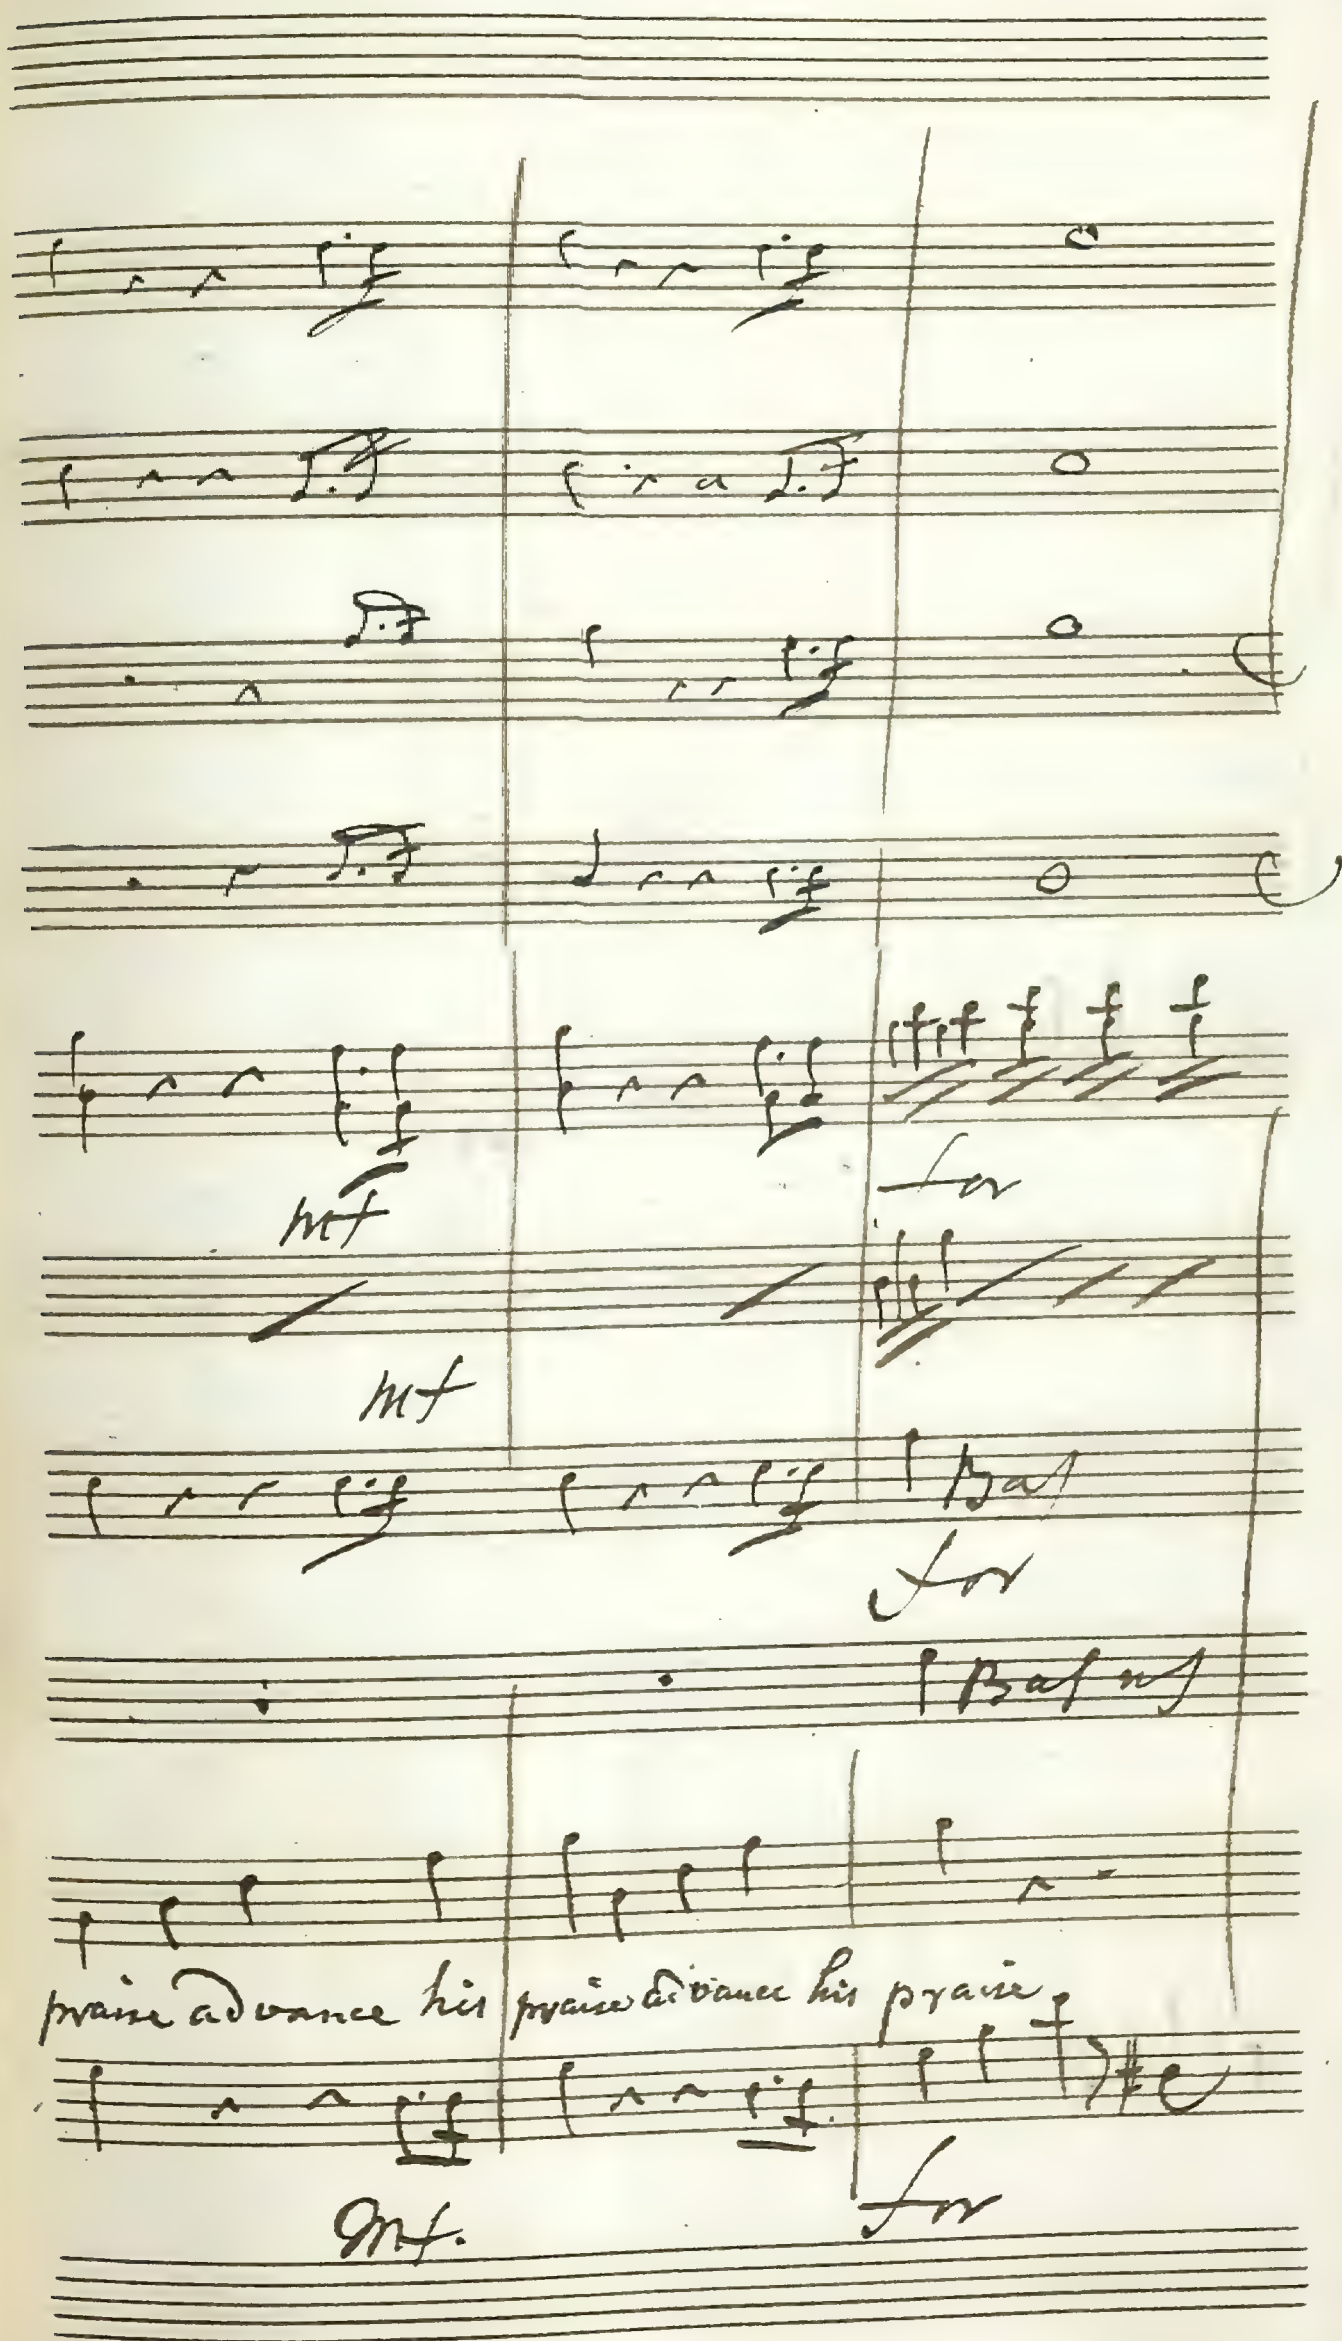 mf
for
mf
Bass
for
Bassus
praise advance his praise advance his praise
Mf.
for